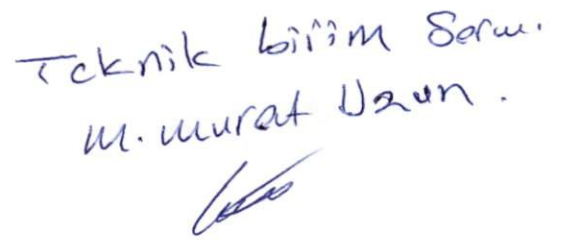 Teknik birim Soru.
M. Murat Uzun.